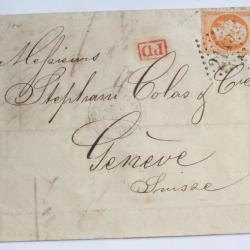 Messieurs
PD
Stephani Colas & Cie
Genève
Suisse